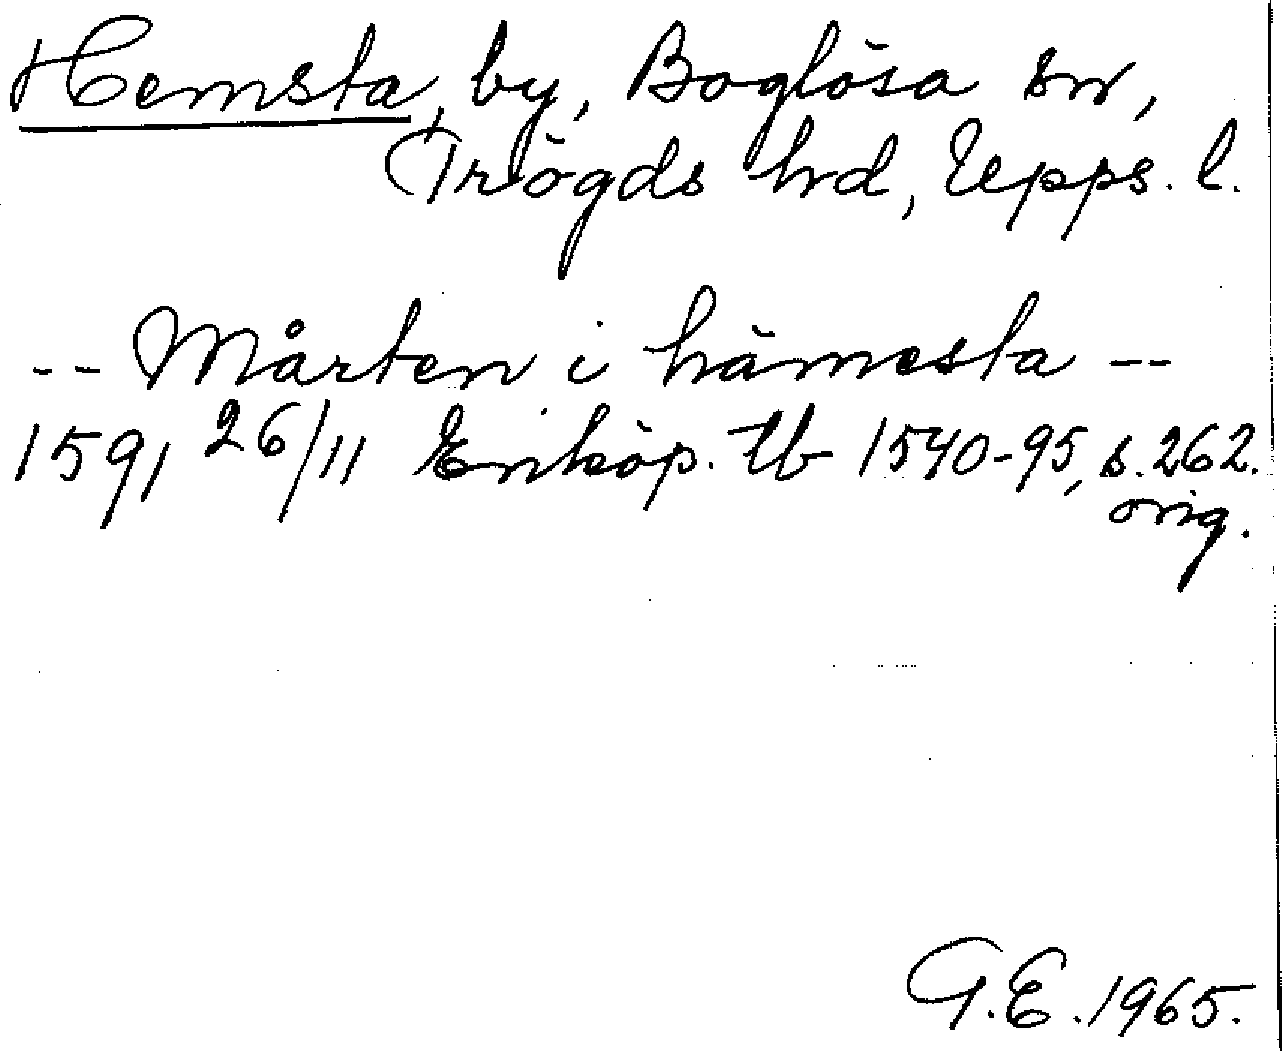 Hemsta, by, Boglösa sn,
Trögds hd, Upps. l.
-- Mårten i hämesta --
1591 26/11 Enköp. tb 1540-95, s. 262.
orig.
G.E. 1965.